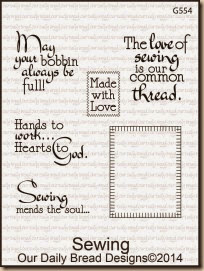 G554
May
your bobbin
always be
full!
The love of
sewing
is our
common
thread.
Made
with
Love
Hands to
work...
Hearts to
God.
Sewing
mends the soul...
Sewing
Our Daily Bread Designs©2014